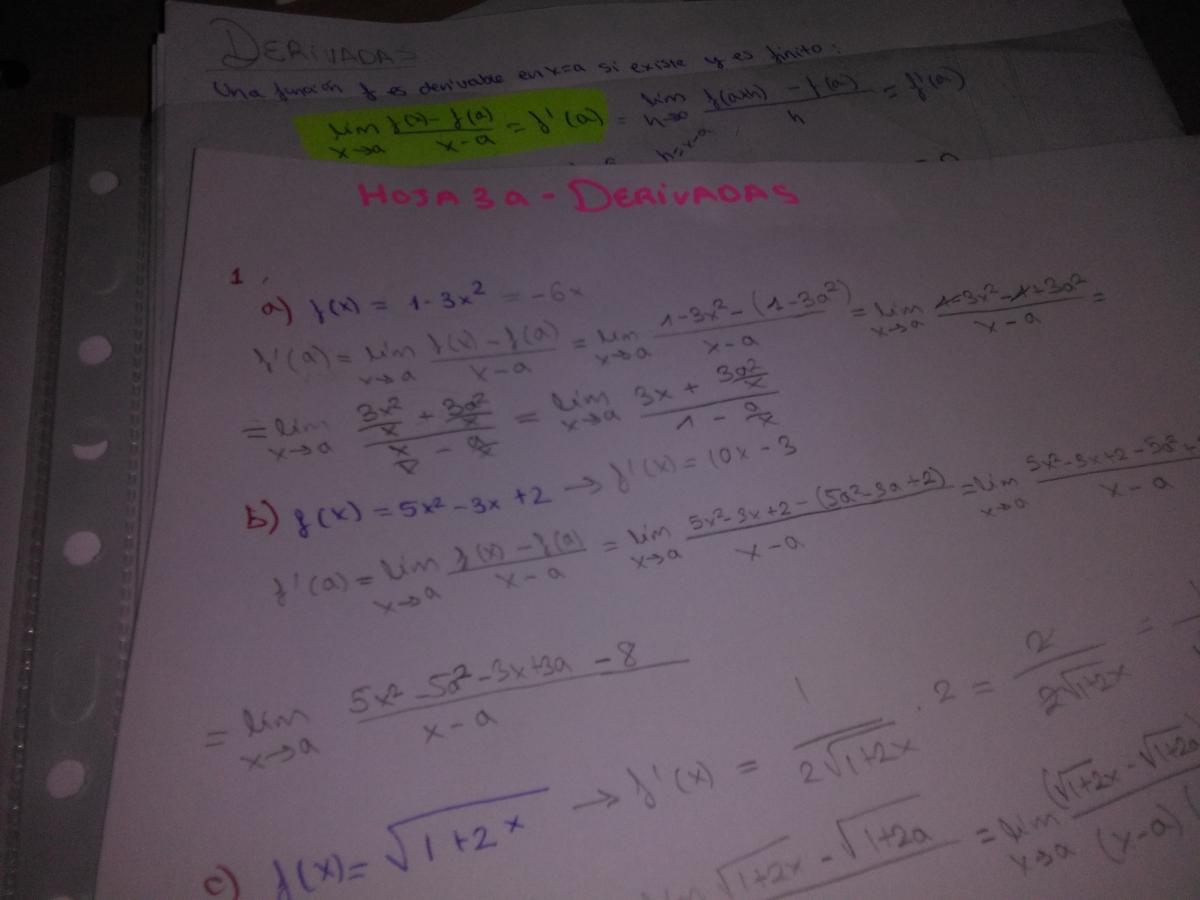 DERIVADAS
Una función f es derivable en x=a si existe y es finito:
lim x→a (f(x) - f(a))/(x-a) = f'(a) = lim h→0 (f(a+h) - f(a))/h = f'(a)
h=x-a
HOJA 3a - DERIVADAS
1.
a) f(x) = 1-3x² = -6x
f'(a) = lim x→a (f(x) - f(a))/(x-a) = lim x→a (1-3x² - (1-3a²))/(x-a) = lim x→a (1-3x² - 1 + 3a²)/(x-a) =
= lim x→a (3x²/x + 3a²/x)/(x/x - a/x) = lim x→a (3x + 3a²/x)/(1 - a/x)
b) f(x) = 5x² - 3x + 2 → f'(x) = 10x - 3
f'(a) = lim x→a (f(x) - f(a))/(x-a) = lim x→a (5x²-3x+2-(5a²-3a+2))/(x-a) = lim x→a (5x²-3x+2-5a²+)/(x-a)
= lim x→a (5x² - 5a² - 3x + 3a - 8)/(x-a)
c) f(x) = √(1+2x) → f'(x) = 1/(2√(1+2x)) · 2 = 2/(2√(1+2x)) =
√(1+2x) - √(1+2a) = lim x→a (√(1+2x) - √(1+2a))/((x-a)(